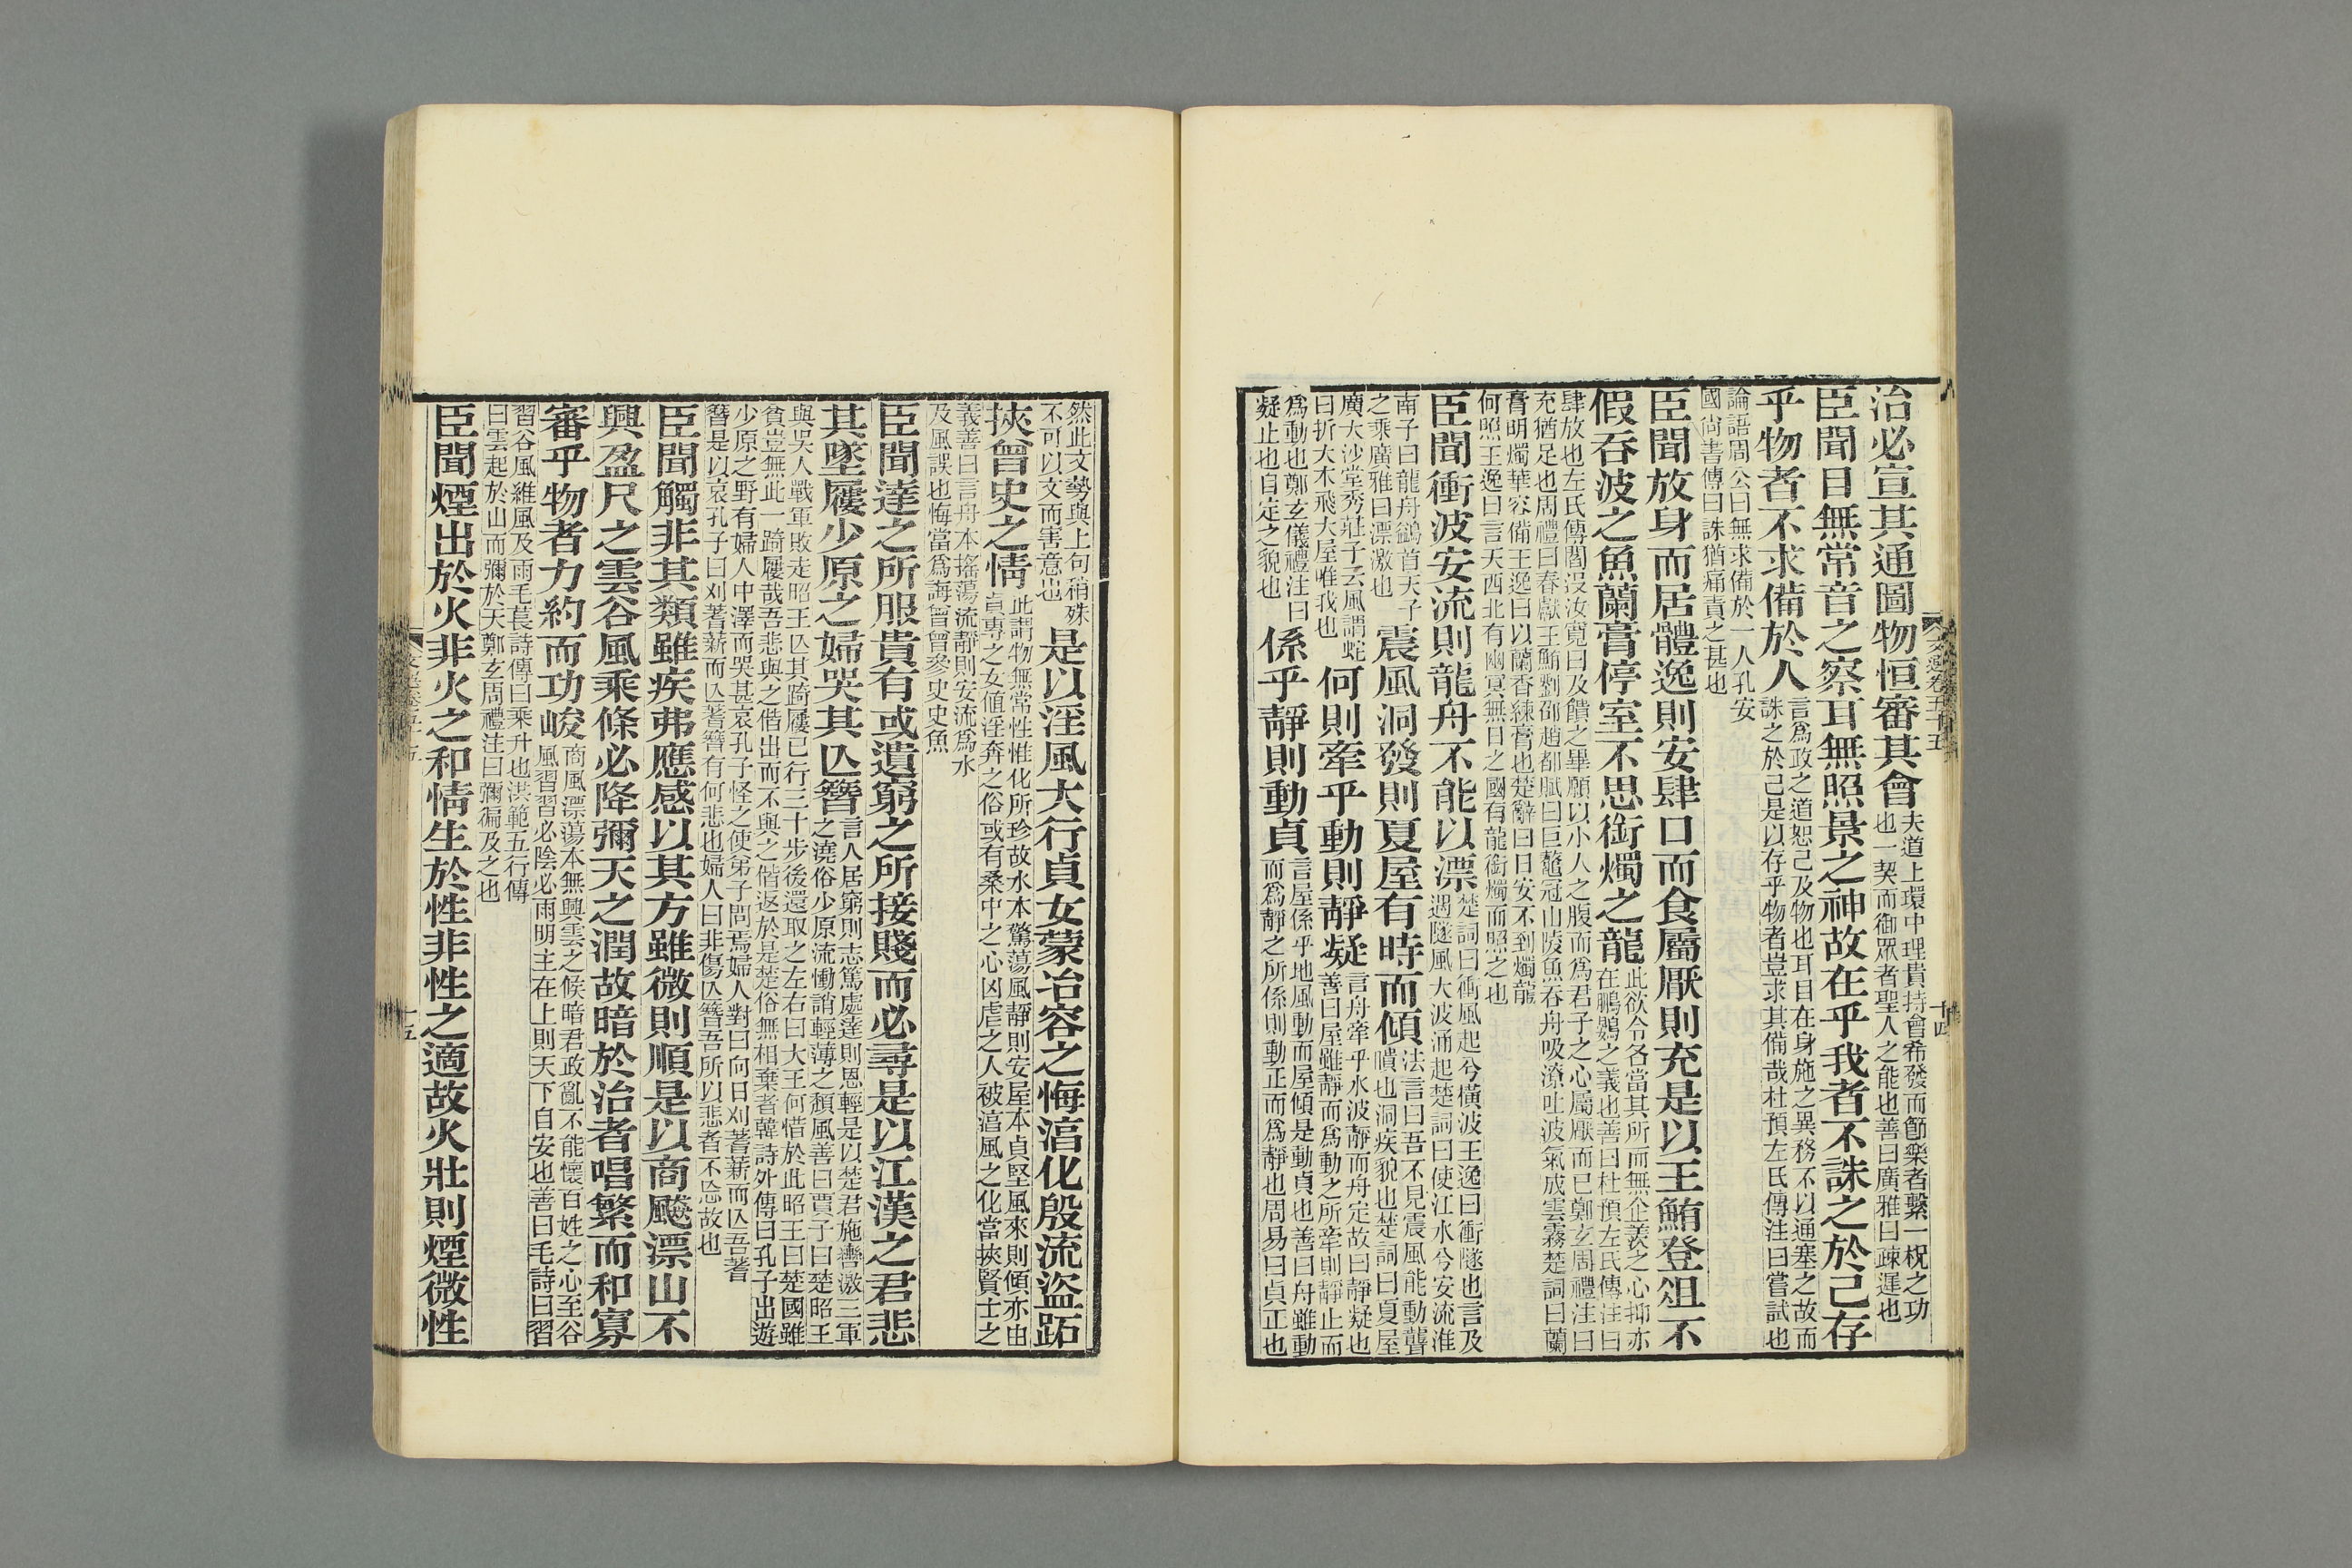 治必宣其通圖物恒審其會夫道上環中理貴持會希發而節樂者繫一柷之功
也一契而御眾者聖人之能也善曰廣雅曰疎遲也
臣聞目無常音之察耳無照景之神故在乎我者不誅之於己存
乎物者不求備於人言爲政之道恕己及物也耳目在身施之異務不以通塞之故而
誅之於己是以存乎物者豈求其備哉杜預左氏傳注曰嘗試也
論語周公曰無求備於一人孔安
國尙書傳曰誅猶痛責之甚也
臣聞放身而居體逸則安肆口而食屬厭則充是以王鮪登俎不
假呑波之魚蘭膏停室不思銜燭之龍此欲令各當其所而無企羨之心抑亦
在鵬鷃之義也善曰杜預左氏傳注曰
肆放也左氏傳閻沒汝寬曰及饋之畢願以小人之腹而爲君子之心屬厭而已鄭玄周禮注曰
充猶足也周禮曰春獻王鮪劉邵趙都賦曰巨鼇冠山陵魚呑舟吸潦吐波氣成雲霧楚詞曰蘭
膏明燭華容備王逸曰以蘭香練膏也楚辭曰日安不到燭龍
何照王逸曰言天西北有幽冥無日之國有龍銜燭而照之也
臣聞衝波安流則龍舟不能以漂楚詞曰衝風起兮橫波王逸曰衝隧也言及
遇隧風大波涌起楚詞曰使江水兮安流淮
南子曰龍舟鷁首天子
之乘廣雅曰漂激也
震風洞發則夏屋有時而傾法言曰吾不見震風能動聾
聵也洞疾貌也楚詞曰夏屋
廣大沙堂秀莊子云風謂蛇
曰折大木飛大屋唯我也
何則牽乎動則靜凝言舟牽乎水波靜而舟定故曰靜凝也
善曰屋雖靜而爲動之所牽則靜止而
爲動也鄭玄儀禮注曰
凝止也自定之貌也
係乎靜則動貞言屋係乎地風動而屋傾是動貞也善曰舟雖動
而爲靜之所係則動正而爲靜也周易曰貞正也
文選卷五十五
十四
然此文勢與上句稍殊
不可以文而害意也
是以淫風大行貞女蒙冶容之悔淯化殷流盜跖
挾曾史之情此謂物無常性惟化所珍故水本驚蕩風靜則安屋本貞堅風來則傾亦由
貞專之女値淫奔之俗或有桑中之心凶虐之人被淯風之化當挾賢士之
義善曰言舟本搖蕩流靜則安流爲水
及風誤也悔當爲誨曾曾參史史魚
臣聞達之所服貴有或遺窮之所接賤而必尋是以江漢之君悲
其墜屨少原之婦哭其亾簪言人居窮則志篤處達則恩輕是以楚君施轡激三軍
之澆俗少原流慟誚輕薄之頹風善曰賈子曰楚昭王
與吳人戰軍敗走昭王亾其踦屨已行三十步後還取之左右曰大王何惜於此昭王曰楚國雖
貧豈無此一踦屨哉吾悲與之偕出而不與之偕返於是楚俗無相棄者韓詩外傳曰孔子出遊
少原之野有婦人中澤而哭甚哀孔子怪之使弟子問焉婦人對曰向日刈蓍薪而亾吾蓍
簪是以哀孔子曰刈蓍薪而亾蓍簪有何悲也婦人曰非傷亾簪吾所以悲者不忘故也
臣聞觸非其類雖疾弗應感以其方雖微則順是以商飈漂山不
興盈尺之雲谷風乘條必降彌天之潤故暗於治者唱繁而和寡
審乎物者力約而功峻商風漂蕩本無興雲之候暗君政亂不能懷百姓之心至谷
風習習必陰必雨明主在上則天下自安也善曰毛詩曰習
習谷風維風及雨毛萇詩傳曰乘升也洪範五行傳
曰雲起於山而彌於天鄭玄周禮注曰彌徧及之也
臣聞煙出於火非火之和情生於性非性之適故火壯則煙微性
十五